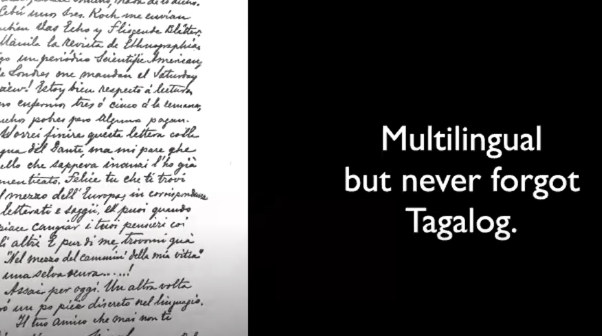 Cebú unos Sres. Koch me envían
Das Echo y Fliegende Blätter,
Manila la Revista de Ethnographia
un periódico Scientific American,
Londres me mandan el Saturday
Estoy bien respecto á lectura,
enfermos tres ó cinco á la semana,
pobres pero alguno pagan.
Vorrei finire questa lettera colla
del Dante, ma mi pare che
che sappeva inanzi l'ho già
Felice tu che ti trovi
mezzo dell'Europa, in corispondenza
letterati e saggii, e puoi quando
cangiar i tuoi pensieri coi
altri E pur di me, trovomi quà
"Nel mezzo del cammini della mia vitta"
una selva oscura.....!
Assai per oggi. Un altra volta
un po più discreto nel linguagio.
Il tuo amico che mai non ti
Multilingual
but never forgot
Tagalog.